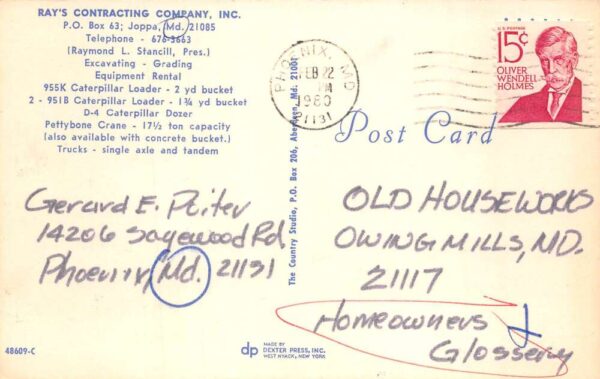 RAY'S CONTRACTING COMPANY, INC.
P.O. Box 63; Joppa, Md. 21085
Telephone - 676-3663
(Raymond L. Stancill, Pres.)
Excavating - Grading
Equipment Rental
955K Caterpillar Loader - 2 yd bucket
2 - 951B Caterpillar Loader - 1¾ yd bucket
D-4 Caterpillar Dozer
Pettybone Crane - 17½ ton capacity
(also available with concrete bucket.)
Trucks - single axle and tandem
PHOENIX, MD
FEB 22
PM
1980
21131
U.S. POSTAGE
15¢
OLIVER
WENDELL
HOLMES
Post Card
The Country Studio, P.O. Box 206, Aberdeen, Md. 21001
Gerard E. Poiter
14206 Sagewood Rd
Phoenix, Md. 21131
OLD HOUSEWORKS
OWING MILLS, MD.
21117
Homeowners
Glossery
48609-C
dp
MADE BY
DEXTER PRESS, INC.
WEST NYACK, NEW YORK